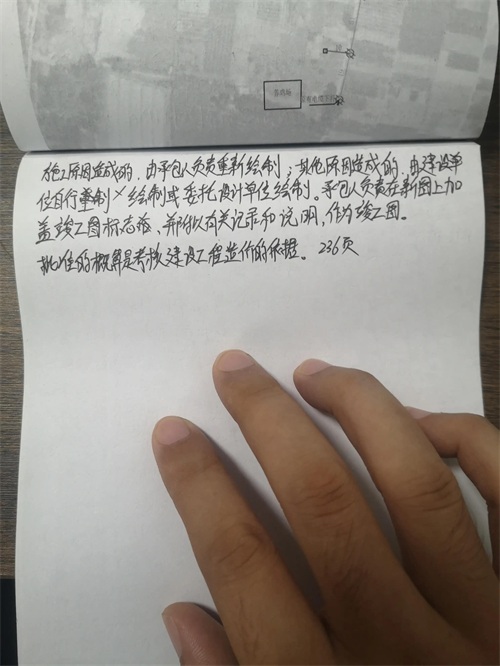 施工原因造成的，由承包人负责重新绘制；其他原因造成的，由建设单
位自行重制×绘制或委托设计单位绘制。承包人负责在新图上加
盖竣工图标志章，并附以有关记录和说明，作为竣工图。
批准的概算是考核建设工程造价的依据。236页